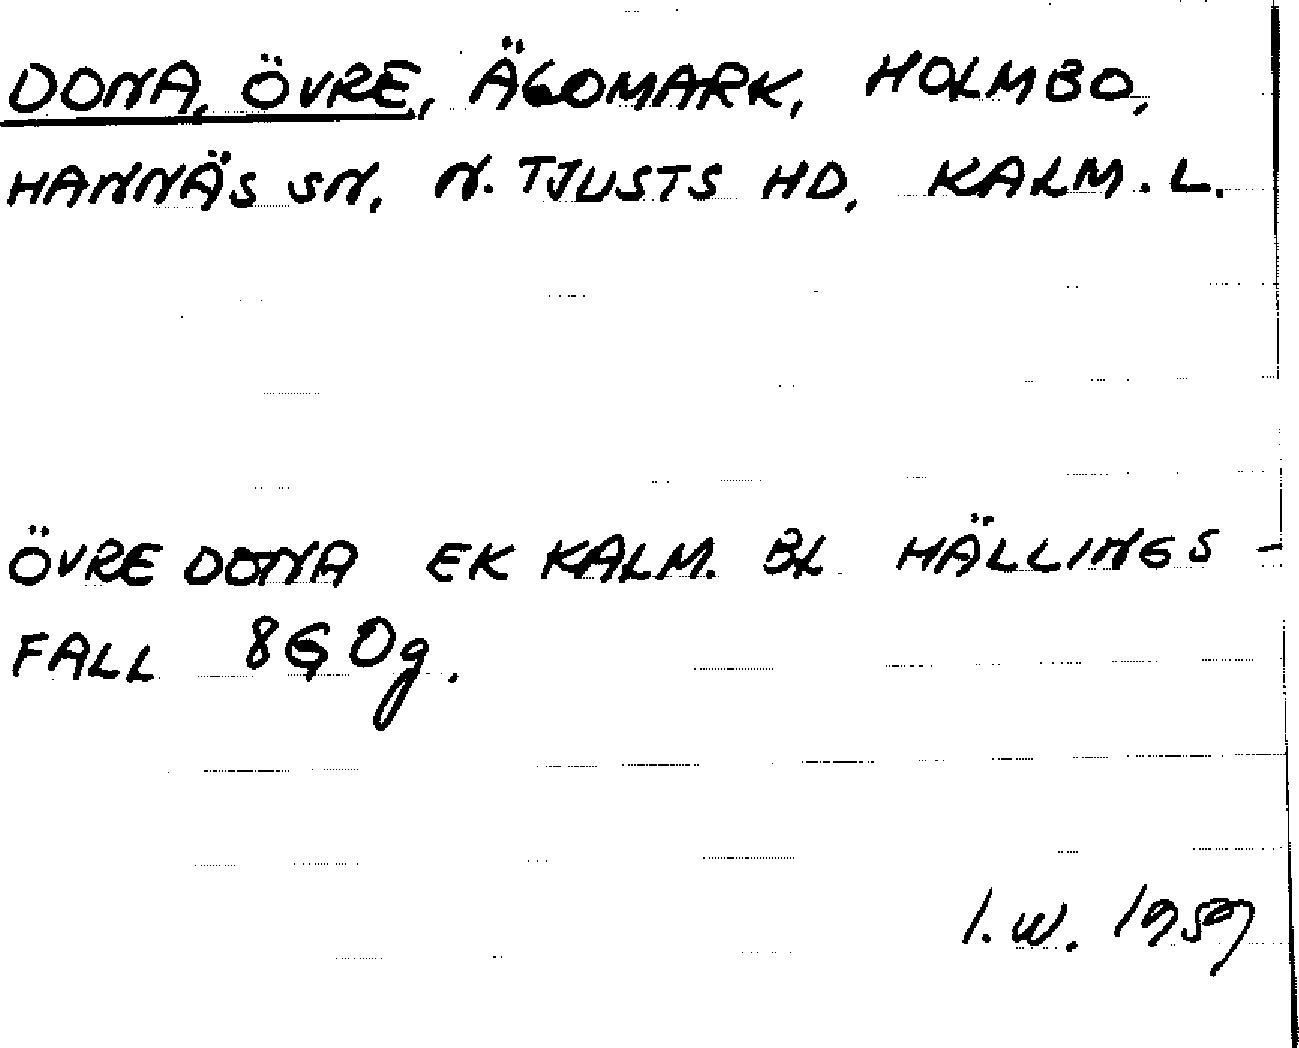 DONA, ÖVRE, ÄGOMARK, HOLMBO,
HANNÄS SN, N. TJUSTS HD, KALM. L.
ÖVRE DONA EK KALM. BL HÄLLINGS-
FALL 8G0g.
I.W. 1959